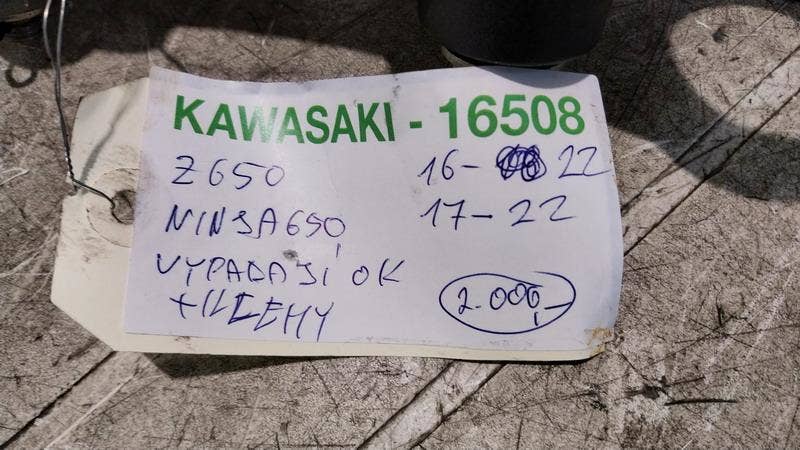 KAWASAKI - 16508
Z650 16- 22
NINJA650 17-22
VYPADAJÍ OK
2.000,-